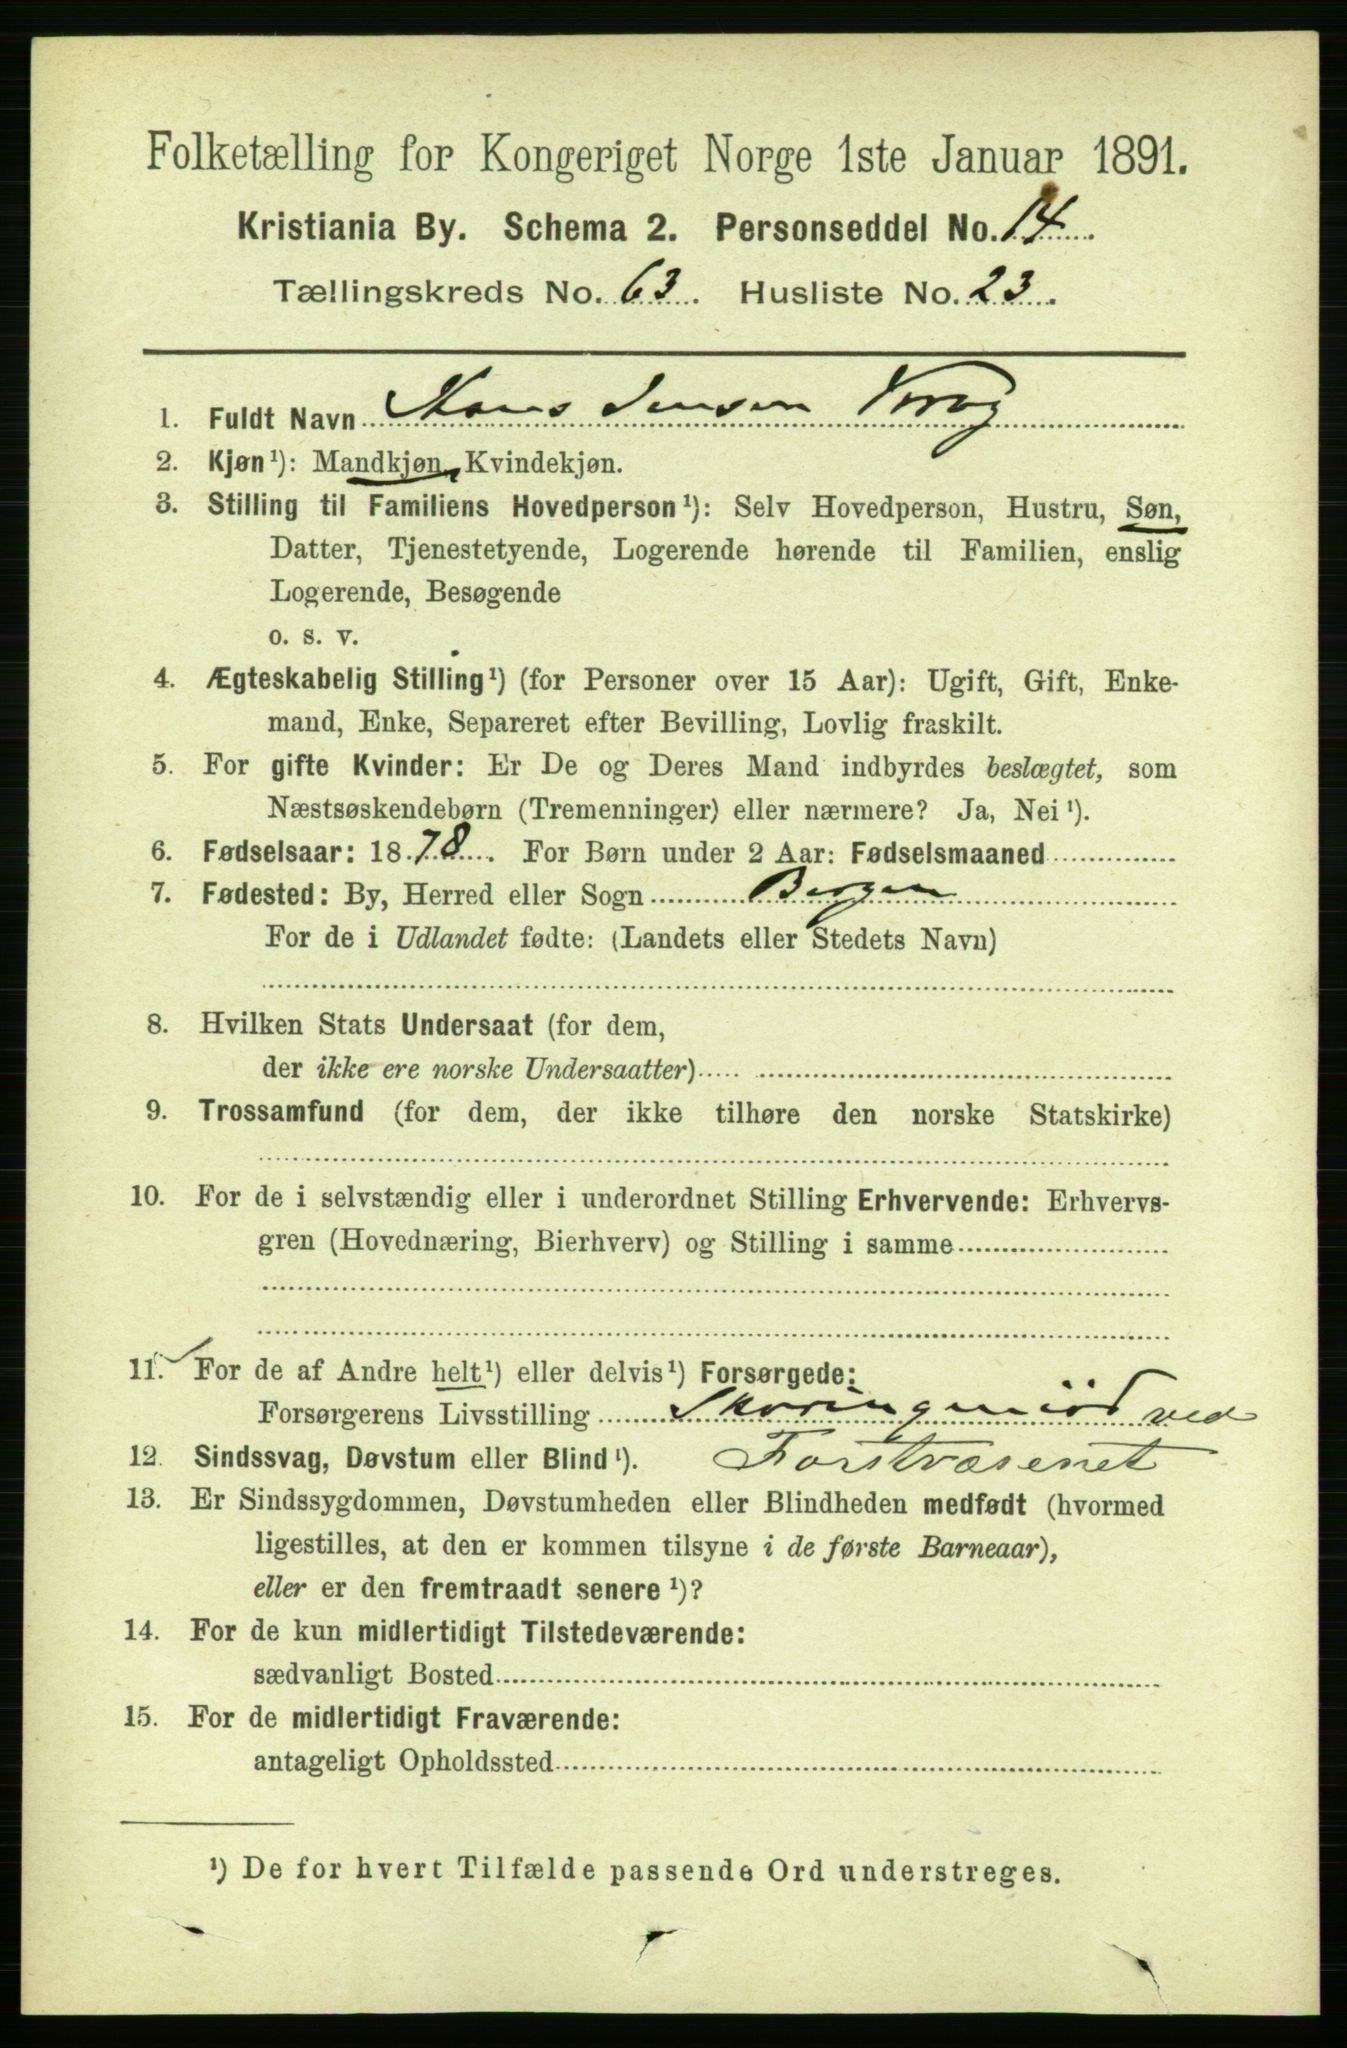 Folketælling for Kongeriget Norge 1ste Januar 1891.
Kristiania By. Schema 2. Personseddel No. 14.
Tællingskreds No. 63. Husliste No. 23.
1. Fuldt Navn Hans Jensen
2. Kjøn¹): Mandkjøn, Kvindekjøn.
3. Stilling til Familiens Hovedperson¹): Selv Hovedperson, Hustru, Søn,
Datter, Tjenestetyende, Logerende hørende til Familien, enslig
Logerende, Besøgende
o. s. v.
4. Ægteskabelig Stilling¹) (for Personer over 15 Aar): Ugift, Gift, Enke-
mand, Enke, Separeret efter Bevilling, Lovlig fraskilt.
5. For gifte Kvinder: Er De og Deres Mand indbyrdes beslægtet, som
Næstsøskendebørn (Tremenninger) eller nærmere? Ja, Nei¹).
6. Fødselsaar: 1878. For Børn under 2 Aar: Fødselsmaaned
7. Fødested: By, Herred eller Sogn Bergen
For de i Udlandet fødte: (Landets eller Stedets Navn)
8. Hvilken Stats Undersaat (for dem,
der ikke ere norske Undersaatter)
9. Trossamfund (for dem, der ikke tilhøre den norske Statskirke)
10. For de i selvstændig eller i underordnet Stilling Erhvervende: Erhvervs-
gren (Hovednæring, Bierhverv) og Stilling i samme
11. For de af Andre helt¹) eller delvis¹) Forsørgede:
Forsørgerens Livsstilling ved
12. Sindssvag, Døvstum eller Blind¹). Forstvæsenet
13. Er Sindssygdommen, Døvstumheden eller Blindheden medfødt (hvormed
ligestilles, at den er kommen tilsyne i de første Barneaar),
eller er den fremtraadt senere¹)?
14. For de kun midlertidigt Tilstedeværende:
sædvanligt Bosted
15. For de midlertidigt Fraværende:
antageligt Opholdssted
¹) De for hvert Tilfælde passende Ord understreges.